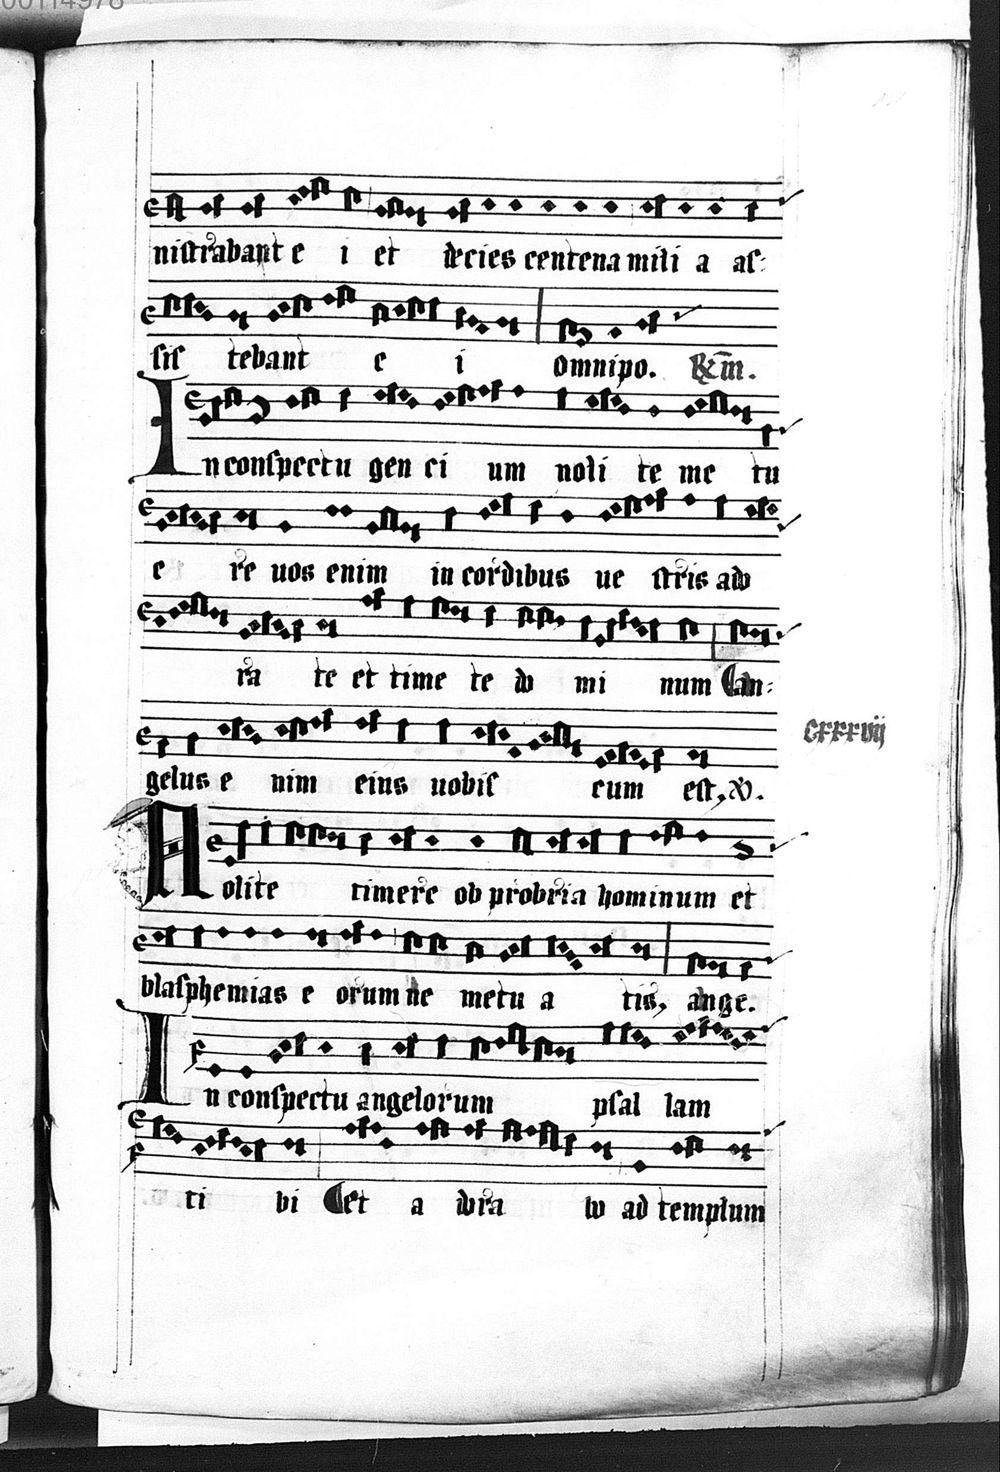 00114978
nistrabant e i et decies centena mili a as:
sis tebant e i omnipo. R̃m.
In conspectu gen ci um noli te me tu
e re uos enim in cordibus ue stris ado
ra te et time te do mi num an:
gelus e nim eius uobis cum est,
cxxxvij
Nolite timere ob probria hominum et
blasphemias e orum ne metu a tis, ange.
In conspectu angelorum psal lam
ti bi et a dora bo ad templum